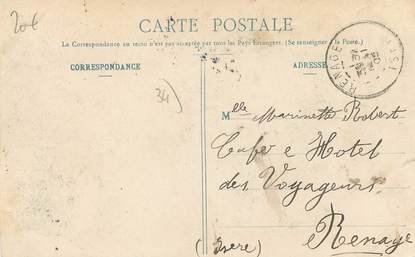 20€
CARTE POSTALE
La Correspondance au recto n'est pas acceptée par tous les Pays Etrangers. (Se renseigner à la Poste.)
CORRESPONDANCE
ADRESSE
RENAGE
34
Mlle Marinette Robert
Cafe e Hotel
des Voyageurs
Renage
(Isere)